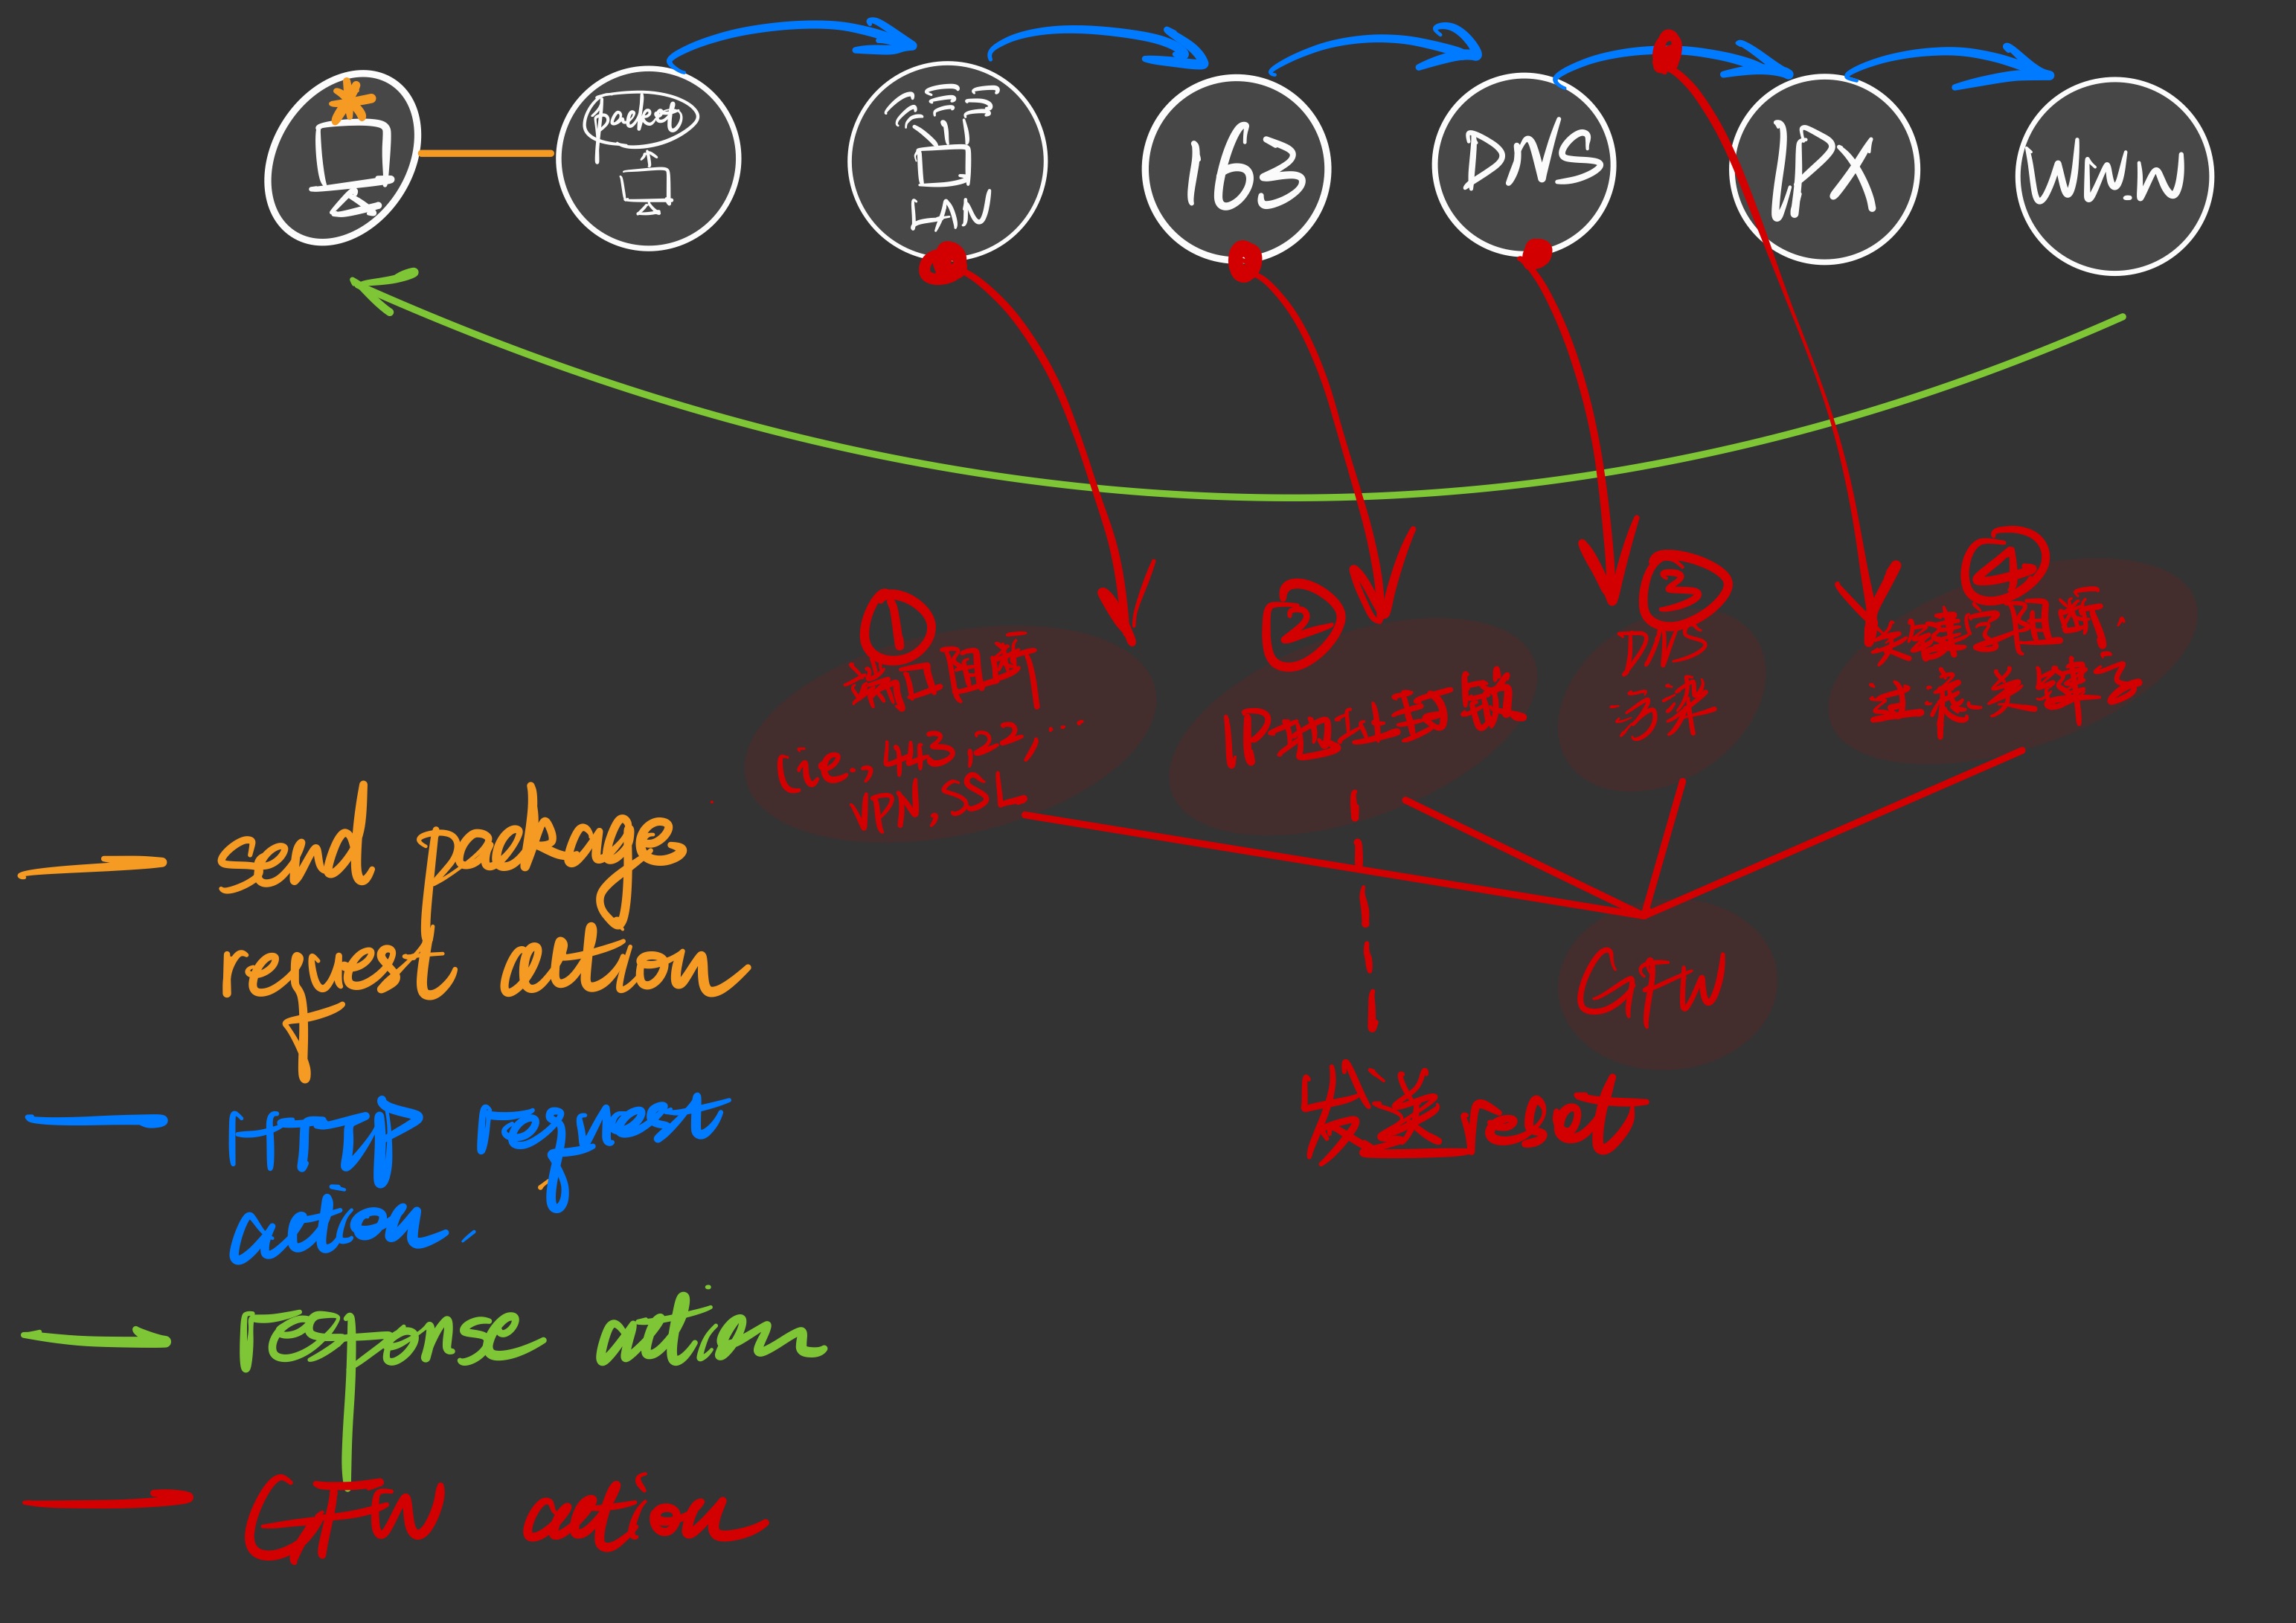 packet
LAN
163
DNS
IPX
WWW
①
端口阻断
(ie., 443, 22, ...
VPN, SSL
②
IP地址封锁
③
DNS
污染
④
关键字阻断.
过滤关键字
GFW
发送reset
send package
request action
HTTP request
action.
Response action
GFW action